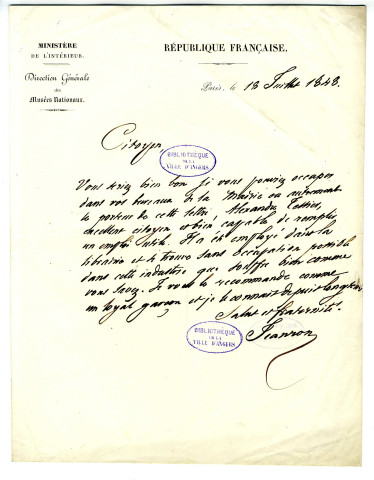 MINISTÈRE
DE L'INTÉRIEUR.
Direction Générale
des
Musées Nationaux.
RÉPUBLIQUE FRANÇAISE.
Paris, le 18 Juillet 1848.
Citoyen,
BIBLIOTHÈQUE
DE LA
VILLE D'ANGERS
Vous seriez bien bon si vous pouviez occuper
dans vos bureaux de la Mairie ou autrement
le porteur de cette lettre, Alexandre
excellent citoyen et bien capable de remplir
un emploi utile. Il a été employé dans la
librairie et se trouve sans occupation possible
dans cette industrie qui souffre bien comme
vous savez. Je vous le recommande comme
un loyal garçon et je le connais depuis longtemps.
Salut et fraternité.
Jeanron
BIBLIOTHÈQUE
DE LA
VILLE D'ANGERS